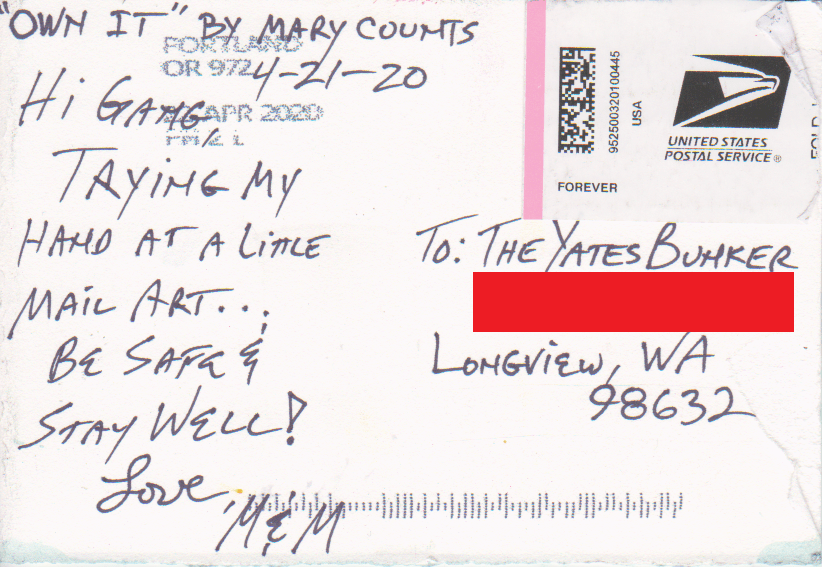 "OWN IT" BY MARY COUNTS
PORTLAND
OR 972
4-21-20
APR 2020
PM 2 L
HI GANG,
TRYING MY
HAND AT A LITTLE
MAIL ART...
BE SAFE &
STAY WELL!
Love,
M&M
9525003201000445
USA
FOREVER
UNITED STATES
POSTAL SERVICE®
TO: THE YATES BUNKER
LONGVIEW, WA
98632